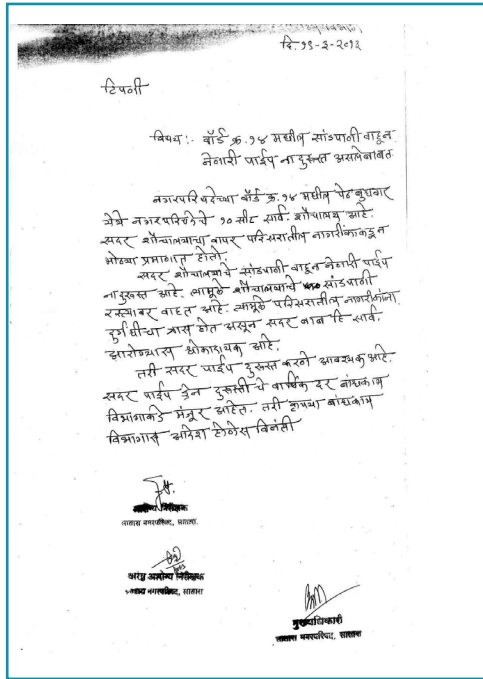 दि. १९-३-२०१२
टिपणी
विषय :- वॉर्ड क्र. १४ मधील सांडपाणी वाहून
नेणारी पाईप नादुरुस्त असलेबाबत
नगरपरिषदेच्या वॉर्ड क्र. १४ मधील पेठ बुधवार
येथे नगरपरिषदेचे १० सीट सार्व. शौचालय आहे.
सदर शौचालयाचा वापर परिसरातील नागरीकांकडून
मोठ्या प्रमाणात होतो.
सदर शौचालयाचे सांडपाणी वाहून नेणारी पाईप
नादुरुस्त आहे. त्यामुळे शौचालयाचे सांडपाणी
रस्त्यावर वाहत आहे. त्यामुळे परिसरातील नागरीकांना
दुर्गंधीचा त्रास होत असून सदर बाब हि सार्व.
आरोग्यास धोकादायक आहे.
तरी सदर पाईप दुरुस्त करणे आवश्यक आहे.
सदर पाईप ड्रेन दुरुस्ती चे वार्षिक दर बांधकाम
विभागाकडे मंजूर आहेत. तरी कृपया बांधकाम
विभागास आदेश होणेस विनंती
आरोग्य निरीक्षक
सातारा नगरपरिषद, सातारा.
आरोग्य निरीक्षक
सातारा नगरपरिषद, सातारा
मुख्याधिकारी
सातारा नगरपरिषद, सातारा